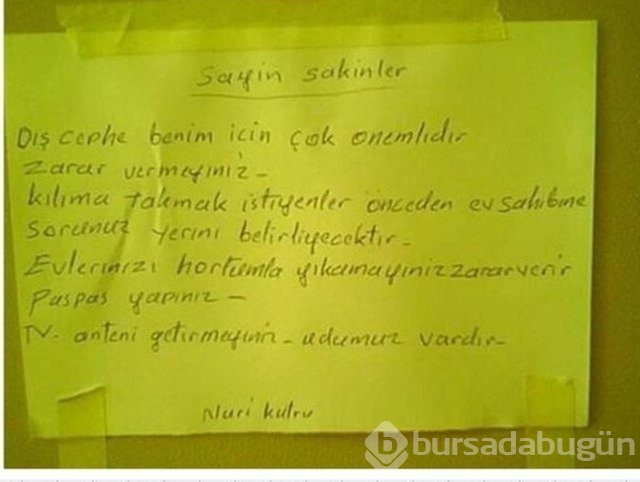 Sayin sakinler
Dış cephe benim için çok onemlıdır
Zarar vermeyiniz -
kılıma takmak istiyenler önceden ev sahıbıne
sorunuz yerını belirliyecektır -
Evlerinizi hortumla yıkamayınız zarar verir
Paspas yapınız -
TV. anteni getirmeyiniz - udumuz vardır -
Nuri kutru
bursadabugün